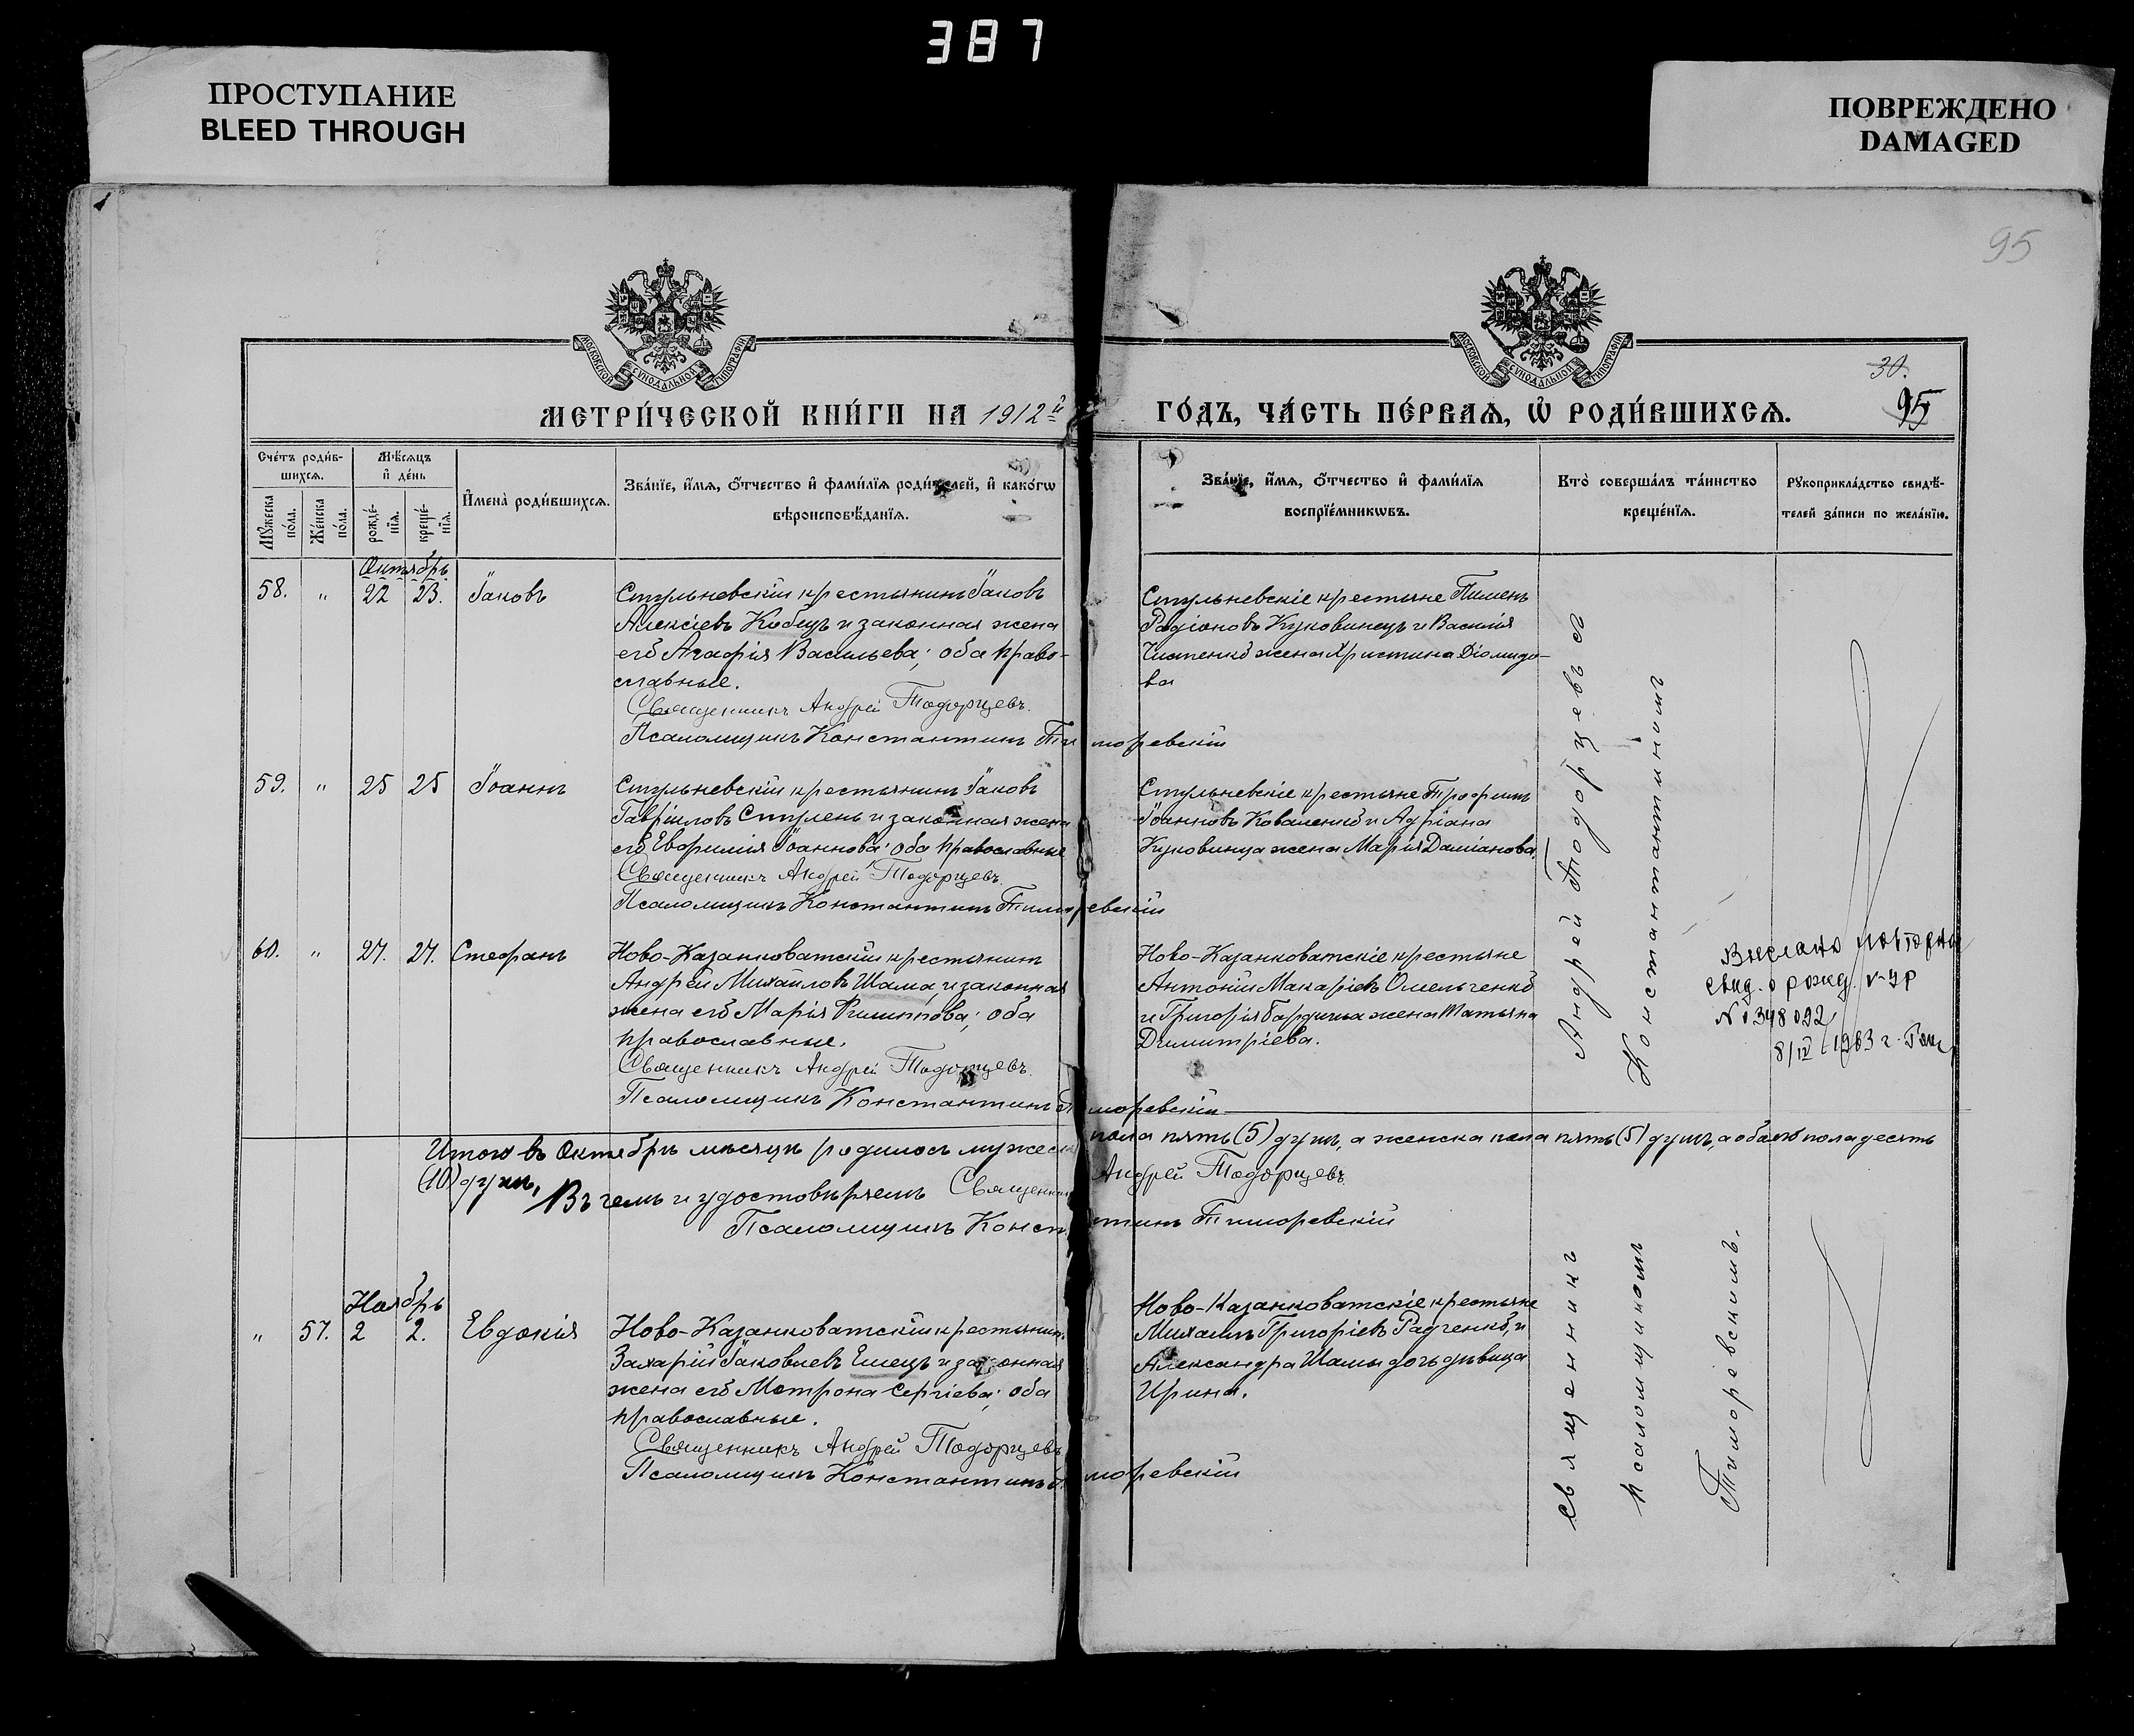 387
ПРОСТУПАНИЕ
BLEED THROUGH
ПОВРЕЖДЕНО
DAMAGED
95
МОСКОВСКОЙ СѴНОДАЛЬНОЙ ТИПОГРАФІИ
МОСКОВСКОЙ СѴНОДАЛЬНОЙ ТИПОГРАФІИ
30.
95
МЕТРИ́ЧЕСКОЙ КНИ́ГИ НА 1912й
ГО́ДЪ, ЧА́СТЬ ПЕ́РВАѦ, Ѡ҆ РОДИ́ВШИХСѦ.
Сче́тъ роди́в-
шихсѧ.
Мѣ́сѧцъ
и҆ де́нь
Мꙋ́жеска
по́ла.
Же́нска
по́ла.
рожде́-
нїѧ.
креще́-
нїѧ.
И҆мена̀ роди́вшихсѧ.
Зва́нїе, и҆́мѧ, ѻ҆́тчество и҆ фами́лїѧ роди́телей, и҆ како́гѡ
вѣроисповѣ́данїѧ.
Зва́нїе, и҆́мѧ, ѻ҆́тчество и҆ фами́лїѧ
воспрїе́мникѡвъ.
Кто̀ соверша́лъ та́инство
креще́нїѧ.
Рꙋкоприкла́дство свидѣ́-
телей за́писи по жела́нїю.
Октябрь
58. " 22 23. Іаковъ
Стульневскій крестьянинъ Іаковъ
Алексіевъ Кобецъ и законная жена
его Агафія Васильева; оба право-
славные.
Священникъ Андрей Тодорцевъ.
Псаломщикъ Константинъ Тиморевскій
Стульневскіе крестьяне Пименъ
Радіоновъ Куковинецъ и Василія
Чистенко жена Христина Діомидо-
ва
59. " 25 25 Іоаннъ
Стульневскій крестьянинъ Іаковъ
Гавріиловъ Ступень и законная жена
его Евфимія Іоаннова; оба православные
Священникъ Андрей Тодорцевъ.
Псаломщикъ Константинъ Тиморевскій
Стульневскіе крестьяне Трофимъ
Іоанновъ Коваленко и Адріана
Куковинца жена Марія Даміанова.
60. " 27. 27. Стефанъ
Ново-Казанковатскій крестьянинъ
Андрей Михаиловъ Шама, и законная
жена его Марія Филиппова; оба
православные.
Священникъ Андрей Тодорцевъ.
Псаломщикъ Константинъ Тиморевскій
Ново-Казанковатскіе крестьяне
Антоній Макаріевъ Омельченко
и Григорія жена Татьяна
Димитріева.
свид. о рожд.
№ 348092
8/IV 1963 г.
Итого въ Октябрѣ мѣсяцѣ родилось мужеска пола пять (5) душъ, а женска пола пять (5) душъ, а обоего пола десять
(10) душъ,
Въ чемъ и удостовѣряемъ Священникъ Андрей Тодорцевъ.
Псаломщикъ Константинъ Тиморевскій
Ноябрь
" 57. 2 2. Евдокія
Ново-Казанковатскій крестьянинъ
Захарій Іаковлевъ Емецъ и законная
жена его Матрона Сергіева; оба
православные.
Священникъ Андрей Тодорцевъ
Псаломщикъ Константинъ Тиморевскій
Ново-Казанковатскіе крестьяне
Михаилъ Григоріевъ Радченко, и
Александра Шамы дочь дѣвица
Ирина.
священникъ Андрей Тодорцевъ съ
псаломщикомъ Константиномъ
Тиморевскимъ.